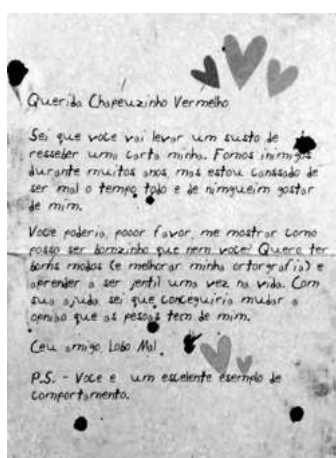 Querida Chapeuzinho Vermelho
Sei que voce vai levar um susto de
resseber uma carta minha. Fomos inimigos
durante muitos anos, mas estou canssado de
ser mal o tempo todo e de nimgueim gostar
de mim.
Voce poderia, pooor favor, me mostrar como
posso ser bomzinho que nem voce? Quero ter
bons modos (e melhorar minha ortorgrafia) e
aprender a ser jentil uma vez na vida. Com
sua ajuda sei que conceguiria mudar a
opnião que as pesoas tem de mim.
Ceu amigo, Lobo Mal
P.S. - Voce e um escelente esemplo de
comportamento.